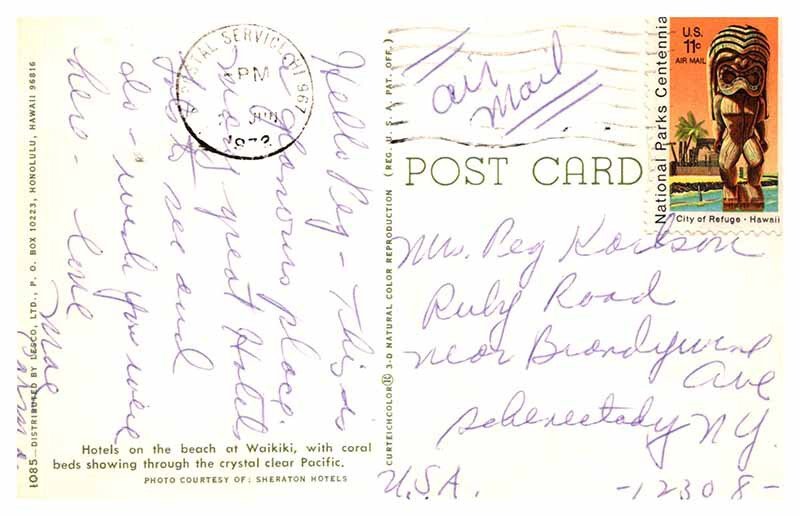 Hello Peg - This is
a glamours place.
many great Hotels
lots to see and
do - wish you were
here - Love
Mae
POSTAL SERVICE, HI 967
PM
JUN
1972
air
mail
U.S.
11c
AIR MAIL
National Parks Centennial
City of Refuge · Hawaii
POST CARD
Mrs. Peg Karlson
Ruby Road
near Brandywine
Ave
Schenectady N.Y.
U.S.A. -12308-
Hotels on the beach at Waikiki, with coral
beds showing through the crystal clear Pacific.
PHOTO COURTESY OF: SHERATON HOTELS
1085—DISTRIBUTED BY LESCO, LTD., P. O. BOX 10223, HONOLULU, HAWAII 96816
CURTEICHCOLOR® 3-D NATURAL COLOR REPRODUCTION (REG. U. S. A. PAT. OFF.)